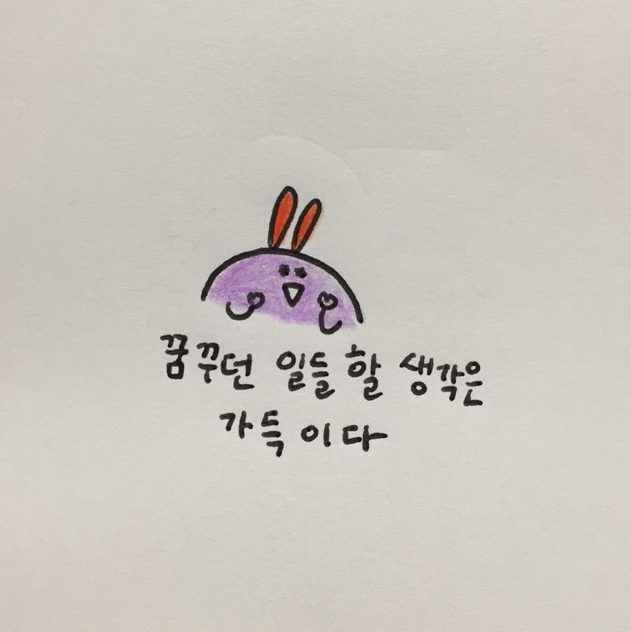 꿈꾸던 일들 할 생각은
가득이다